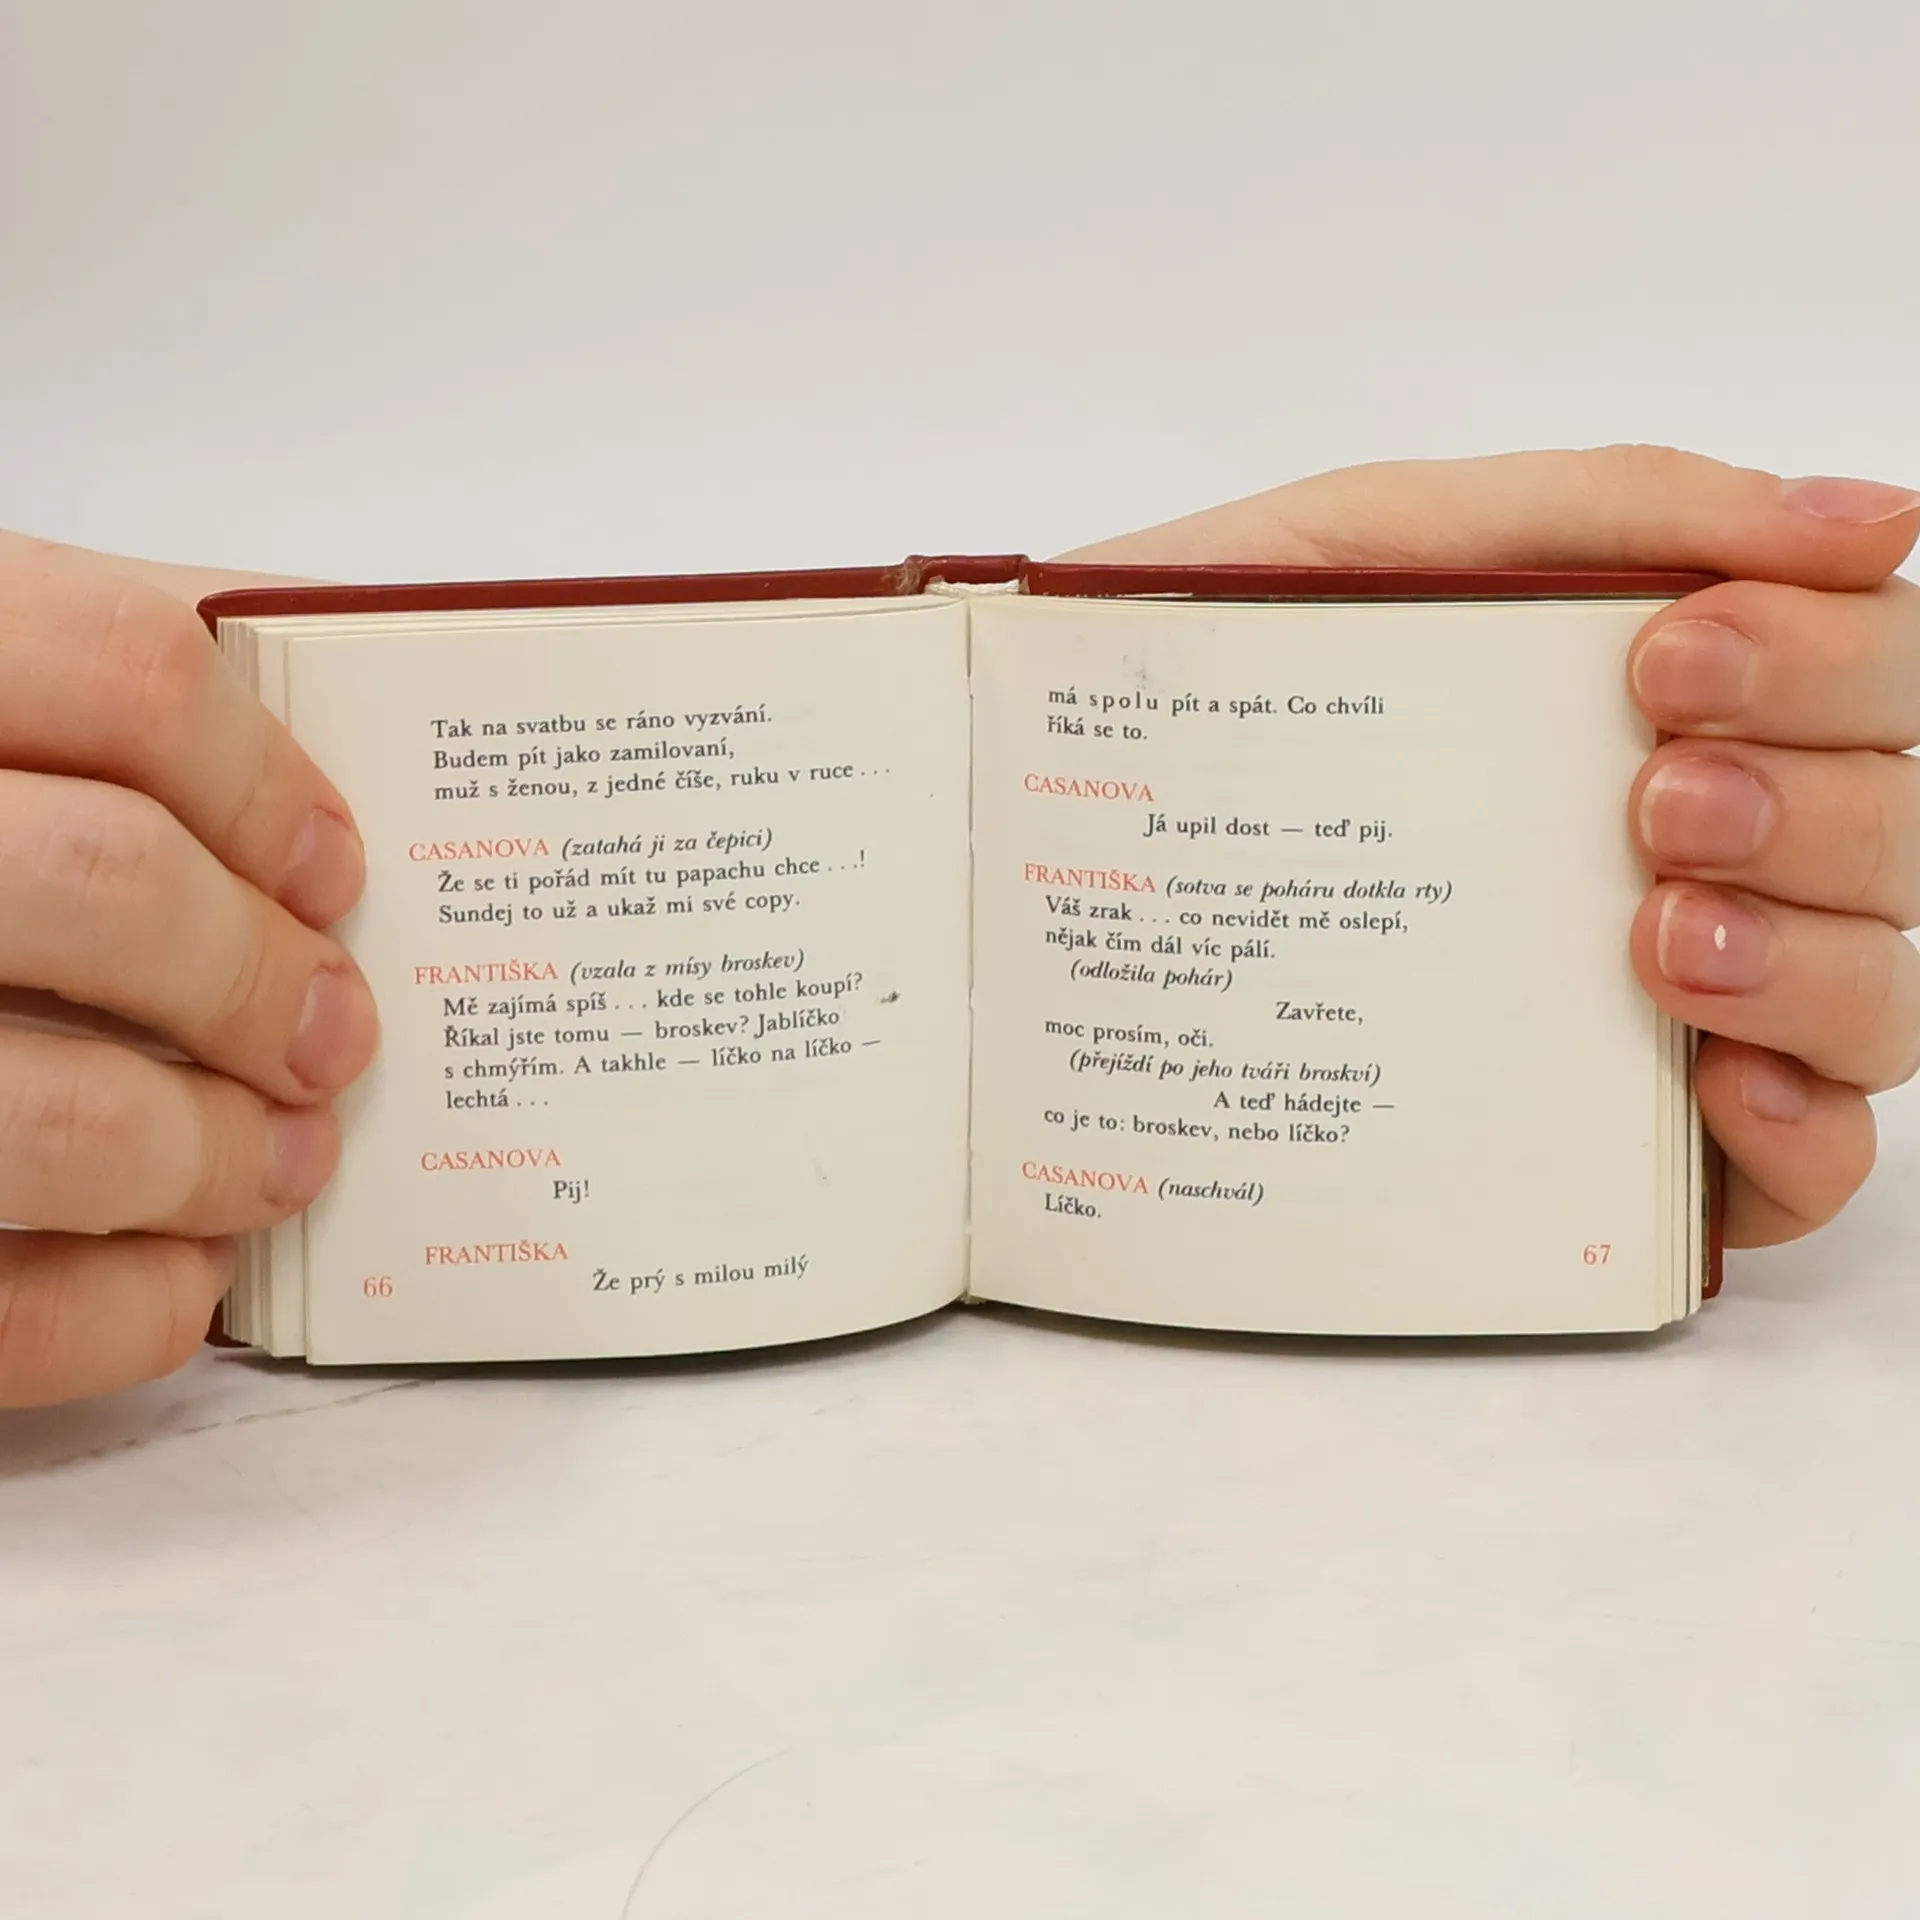 Tak na svatbu se ráno vyzvání.
Budem pít jako zamilovaní,
muž s ženou, z jedné číše, ruku v ruce . . .
CASANOVA (zatahá ji za čepici)
Že se ti pořád mít tu papachu chce . . .!
Sundej to už a ukaž mi své copy.
FRANTIŠKA (vzala z mísy broskev)
Mě zajímá spíš . . . kde se tohle koupí?
Říkal jste tomu — broskev? Jablíčko
s chmýřím. A takhle — líčko na líčko —
lechtá . . .
CASANOVA
Pij!
FRANTIŠKA
Že prý s milou milý
66
má spolu pít a spát. Co chvíli
říká se to.
CASANOVA
Já upil dost — teď pij.
FRANTIŠKA (sotva se poháru dotkla rty)
Váš zrak . . . co nevidět mě oslepí,
nějak čím dál víc pálí.
(odložila pohár)
Zavřete,
moc prosím, oči.
(přejíždí po jeho tváři broskví)
A teď hádejte —
co je to: broskev, nebo líčko?
CASANOVA (naschvál)
Líčko.
67